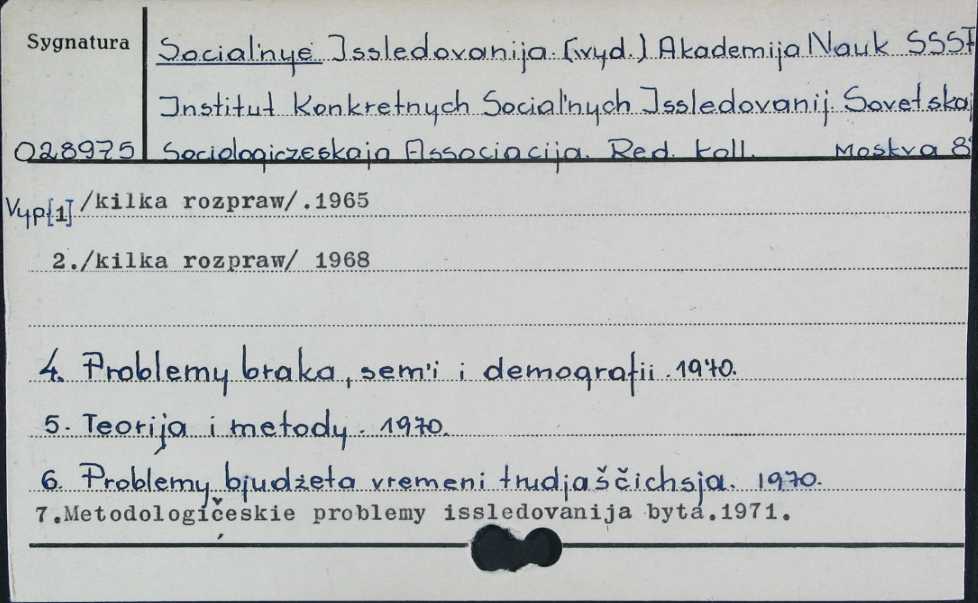 Sygnatura
Social'nye Issledovanija. (wyd.) Akademija Nauk SSSR
Institut Konkretnych Social'nych Issledovanij. Sovetskaj
028975 Sociologiczeskaja Associacija. Red. koll. Moskva 8°
Vyp[1] /kilka rozpraw/.1965
2./kilka rozpraw/ 1968
4. Problemy braka, sem'i i demografii. 1970.
5. Teorija i metody. 1970.
6. Problemy bjudżeta vremeni trudjaščichsja. 1970.
7.Metodologičeskie problemy issledovanija byta.1971.